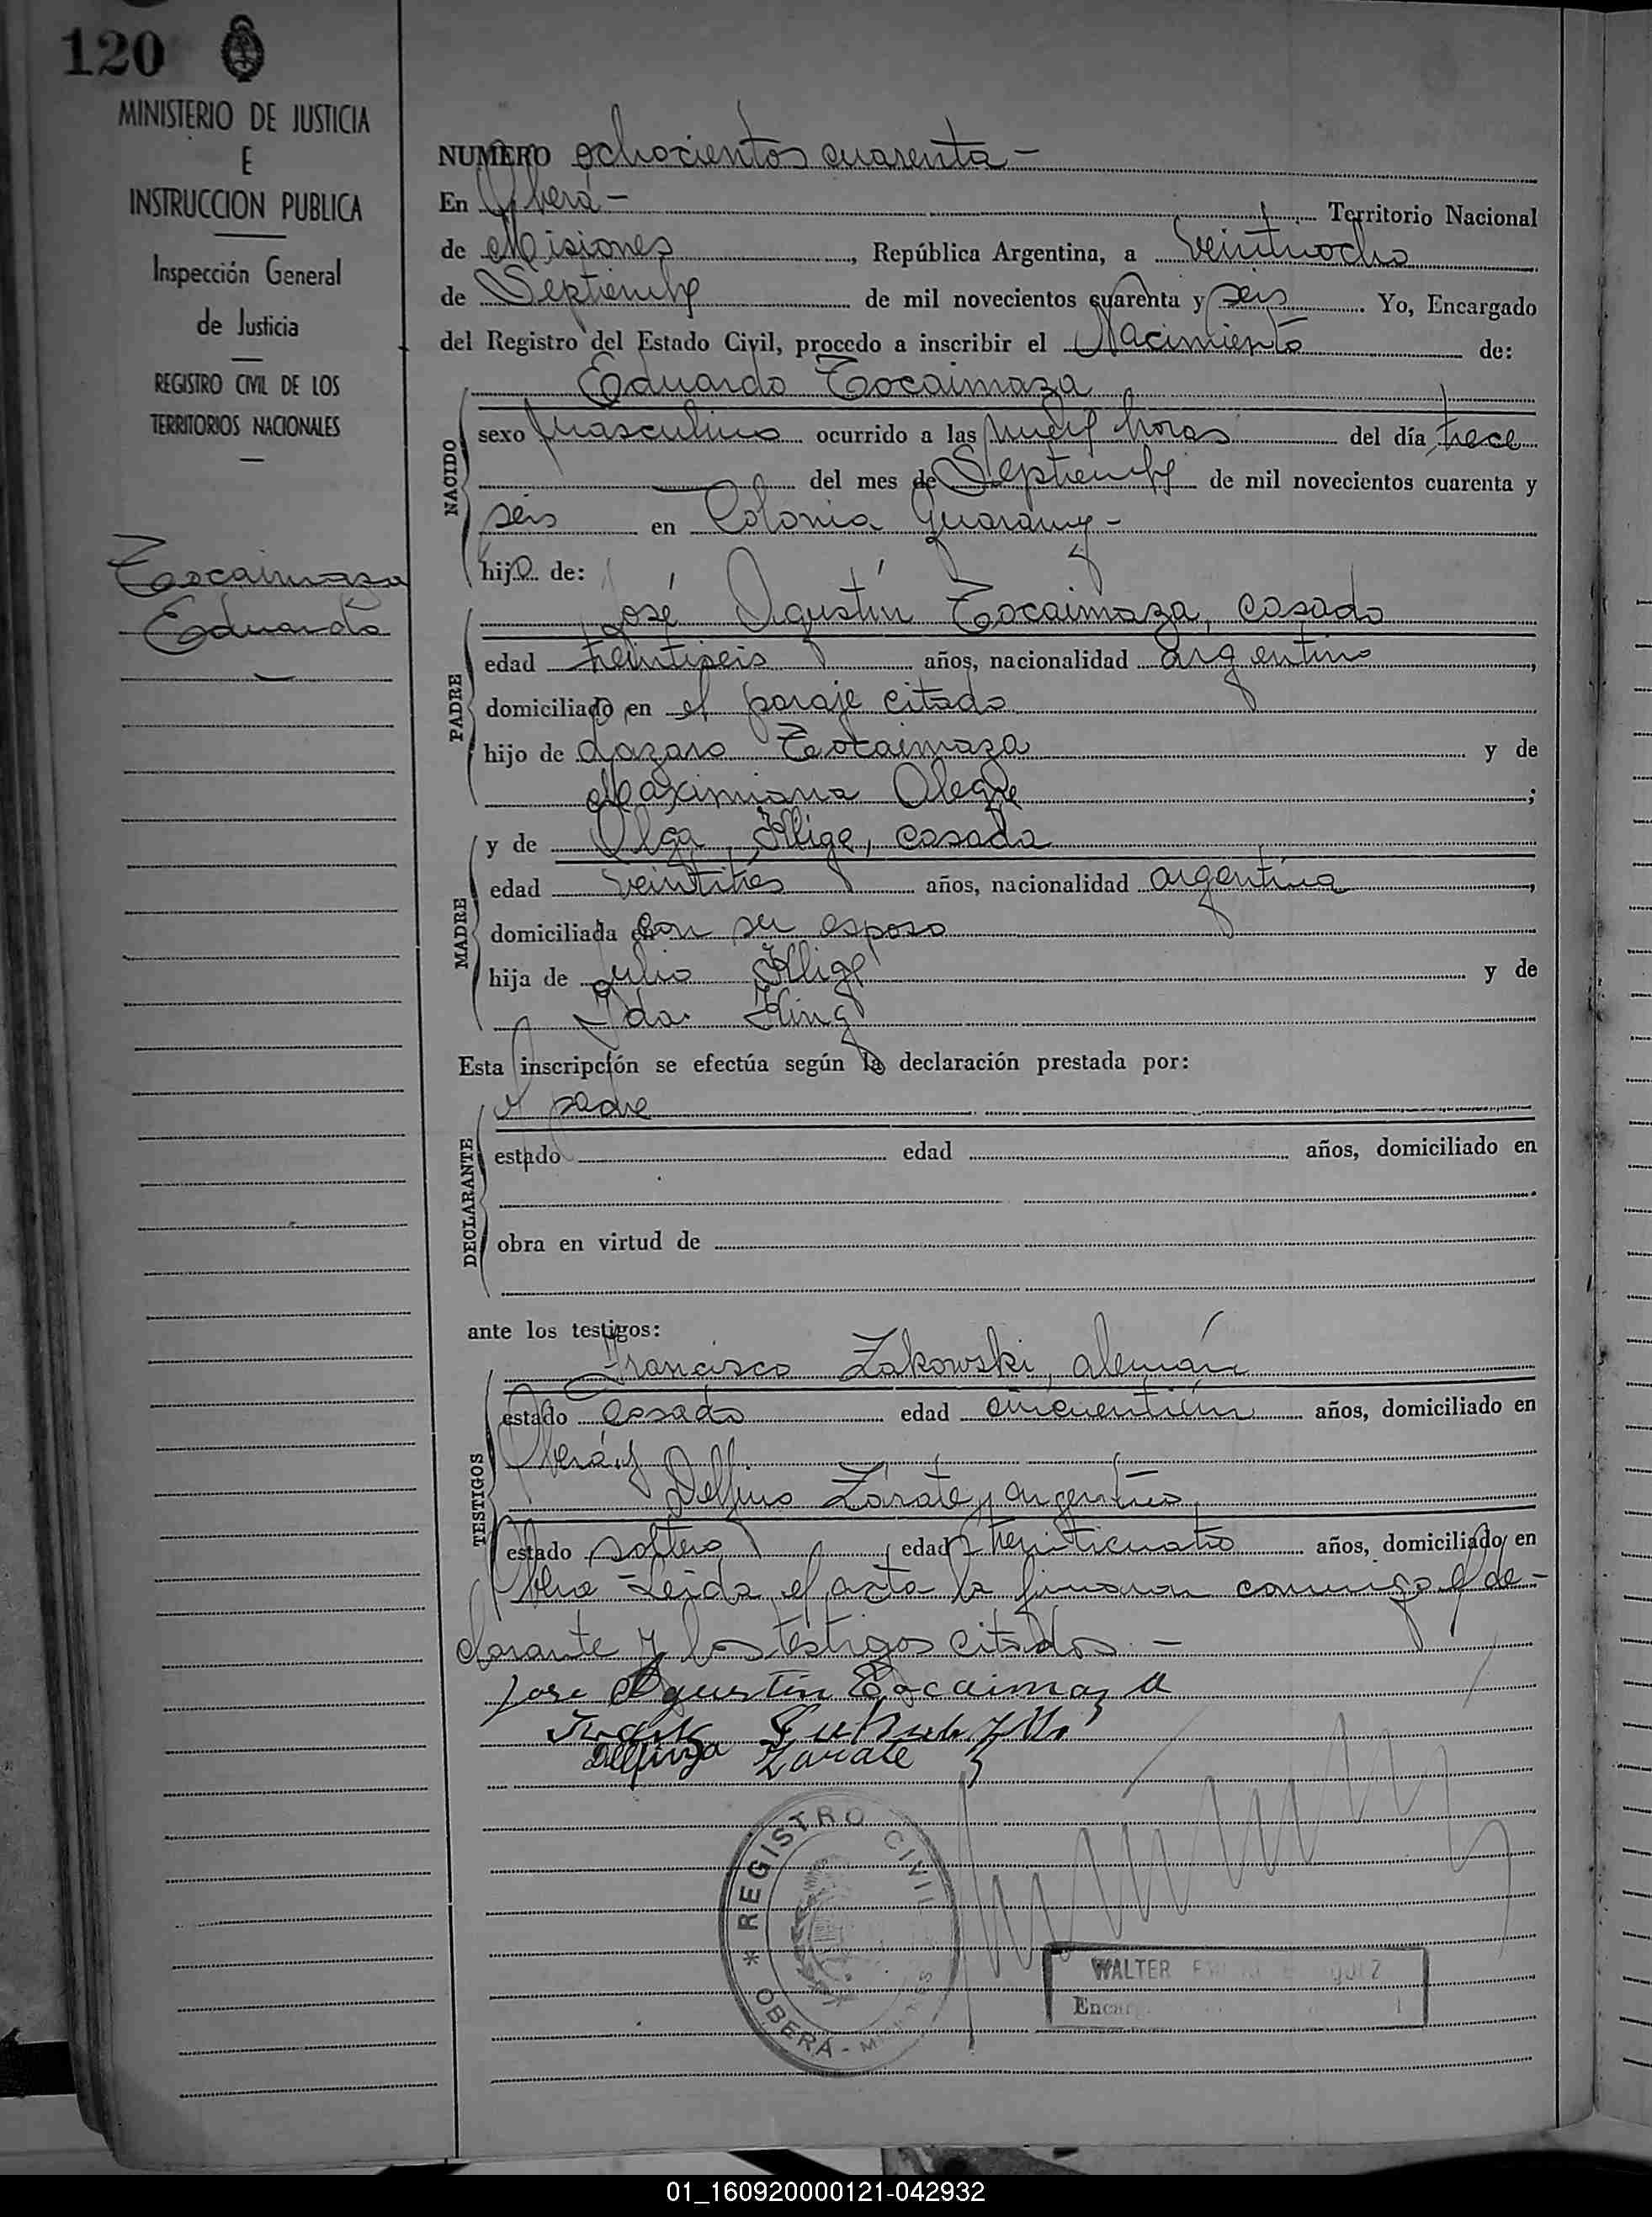 120
MINISTERIO DE JUSTICIA
E
INSTRUCCION PUBLICA
Inspección General
de Justicia
REGISTRO CIVIL DE LOS
TERRITORIOS NACIONALES
Tocaimaza
Eduardo
NUMERO ochocientos cuarenta -
En Oberá - Territorio Nacional
de Misiones, República Argentina, a veintiocho
de Septiembre de mil novecientos cuarenta y seis. Yo, Encargado
del Registro del Estado Civil, procedo a inscribir el Nacimiento de:
Eduardo Tocaimaza
NACIDO
sexo masculino ocurrido a las nueve horas del día trece
del mes de Septiembre de mil novecientos cuarenta y
seis en Colonia Guarany -
hijo de:
José Agustín Tocaimaza, casado
PADRE
edad treintiseis años, nacionalidad argentino,
domiciliado en el paraje citado
hijo de Lazaro Tocaimaza y de
Maximiana Alegre;
y de Olga Illige, casada
MADRE
edad veintitres años, nacionalidad argentina,
domiciliada en con su esposo
hija de Julio Illige y de
Ida King
Esta inscripción se efectúa según la declaración prestada por:
el padre
DECLARANTE
estado edad años, domiciliado en
obra en virtud de
ante los testigos:
Francisco Zakowski, alemán
TESTIGOS
estado casado edad cincuentiún años, domiciliado en
Oberá y
Delfino Zárate, argentino,
estado soltero, edad treinticuatro años, domiciliado en
Leida el acta la firmaron conmigo el de-
clarante y los testigos citados. -
Jose Agustin Tocaimaza
Zarate
REGISTRO CIVIL
* OBERÁ -
WALTER